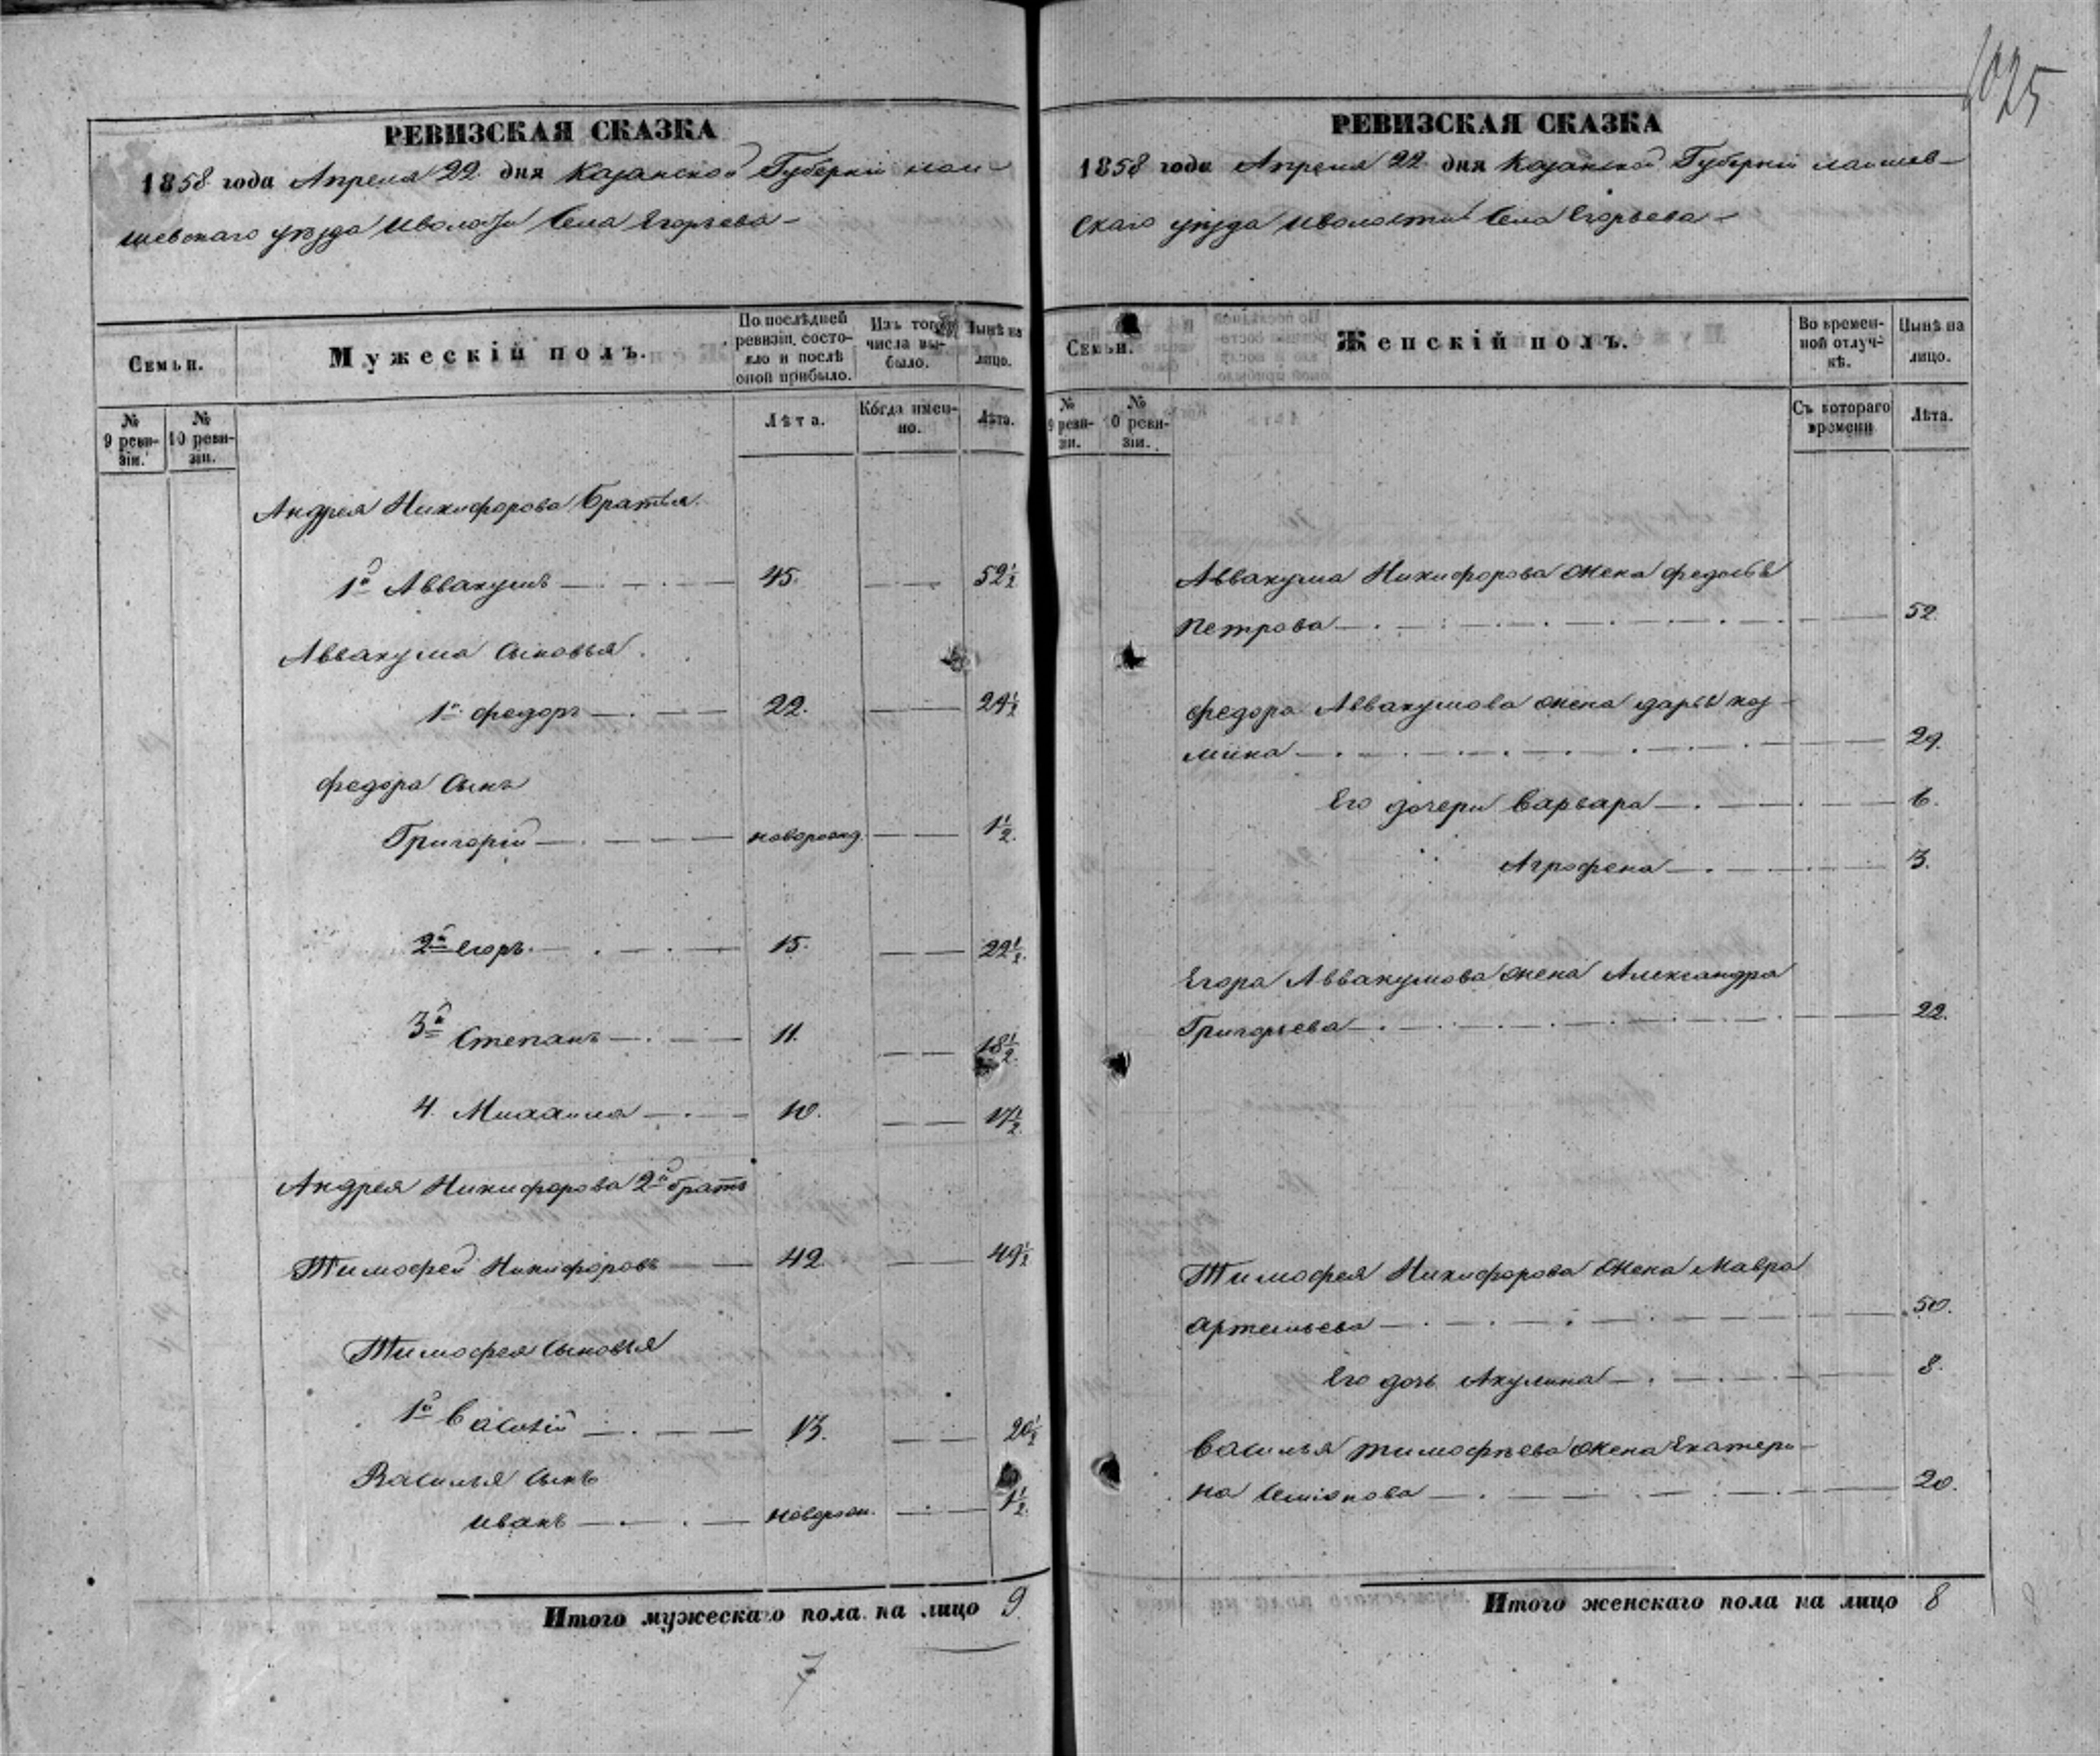 1025
РЕВИЗСКАЯ СКАЗКА
1858 года Апреля 22 дня Казанской Губерніи лаи-
шевскаго уѣзда и волости Села Егорьева
Семьи.
Мужескій полъ.
По послѣдней ревизіи состояло и послѣ оной прибыло.
Изъ того числа выбыло.
Нынѣ на лицо.
№ 9 ревизіи.
№ 10 ревизіи.
Лѣта.
Когда именно.
Лѣта.
Андрея Никифорова братья
1й Аввакумъ 45. 52½
Аввакума сыновья
1й федоръ 22. 29½
федора сынъ
Григорій новорожд. 1½
2й Егоръ 15. 22½
3й Степанъ 11. 18½
4. Михаила 10. 17½
Андрея Никифорова 2й братъ
Тимофей Никифоровъ 42 49½
Тимофея сыновья
1й Василій 13. 20½
Василья сынъ
иванъ новорож. 1½
Итого мужескаго пола на лицо 9
7
РЕВИЗСКАЯ СКАЗКА
1858 года Апреля 22 дня Казанской Губерніи лаишев-
скаго уѣзда и волости Села Егорьева
Семьи.
Женскій полъ.
Во временной отлучкѣ.
Нынѣ на лицо.
№ 9 ревизіи.
№ 10 ревизіи.
Съ котораго времени
Лѣта.
Аввакума Никифорова жена федосья
Петрова 52
федора Аввакумова жена дарья коз-
мина 29.
Его дочери Варвара 6.
Агрофена 3.
Егора Аввакумова жена Александра
Григорьева 22.
Тимофея Никифорова жена Мавра
артемьева 50.
Его дочь Акулина 8.
Василья тимофѣева жена Екатери-
на Семіонова 20.
Итого женскаго пола на лицо 8